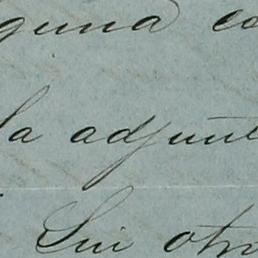 guna co
la adjunt
Sin otro